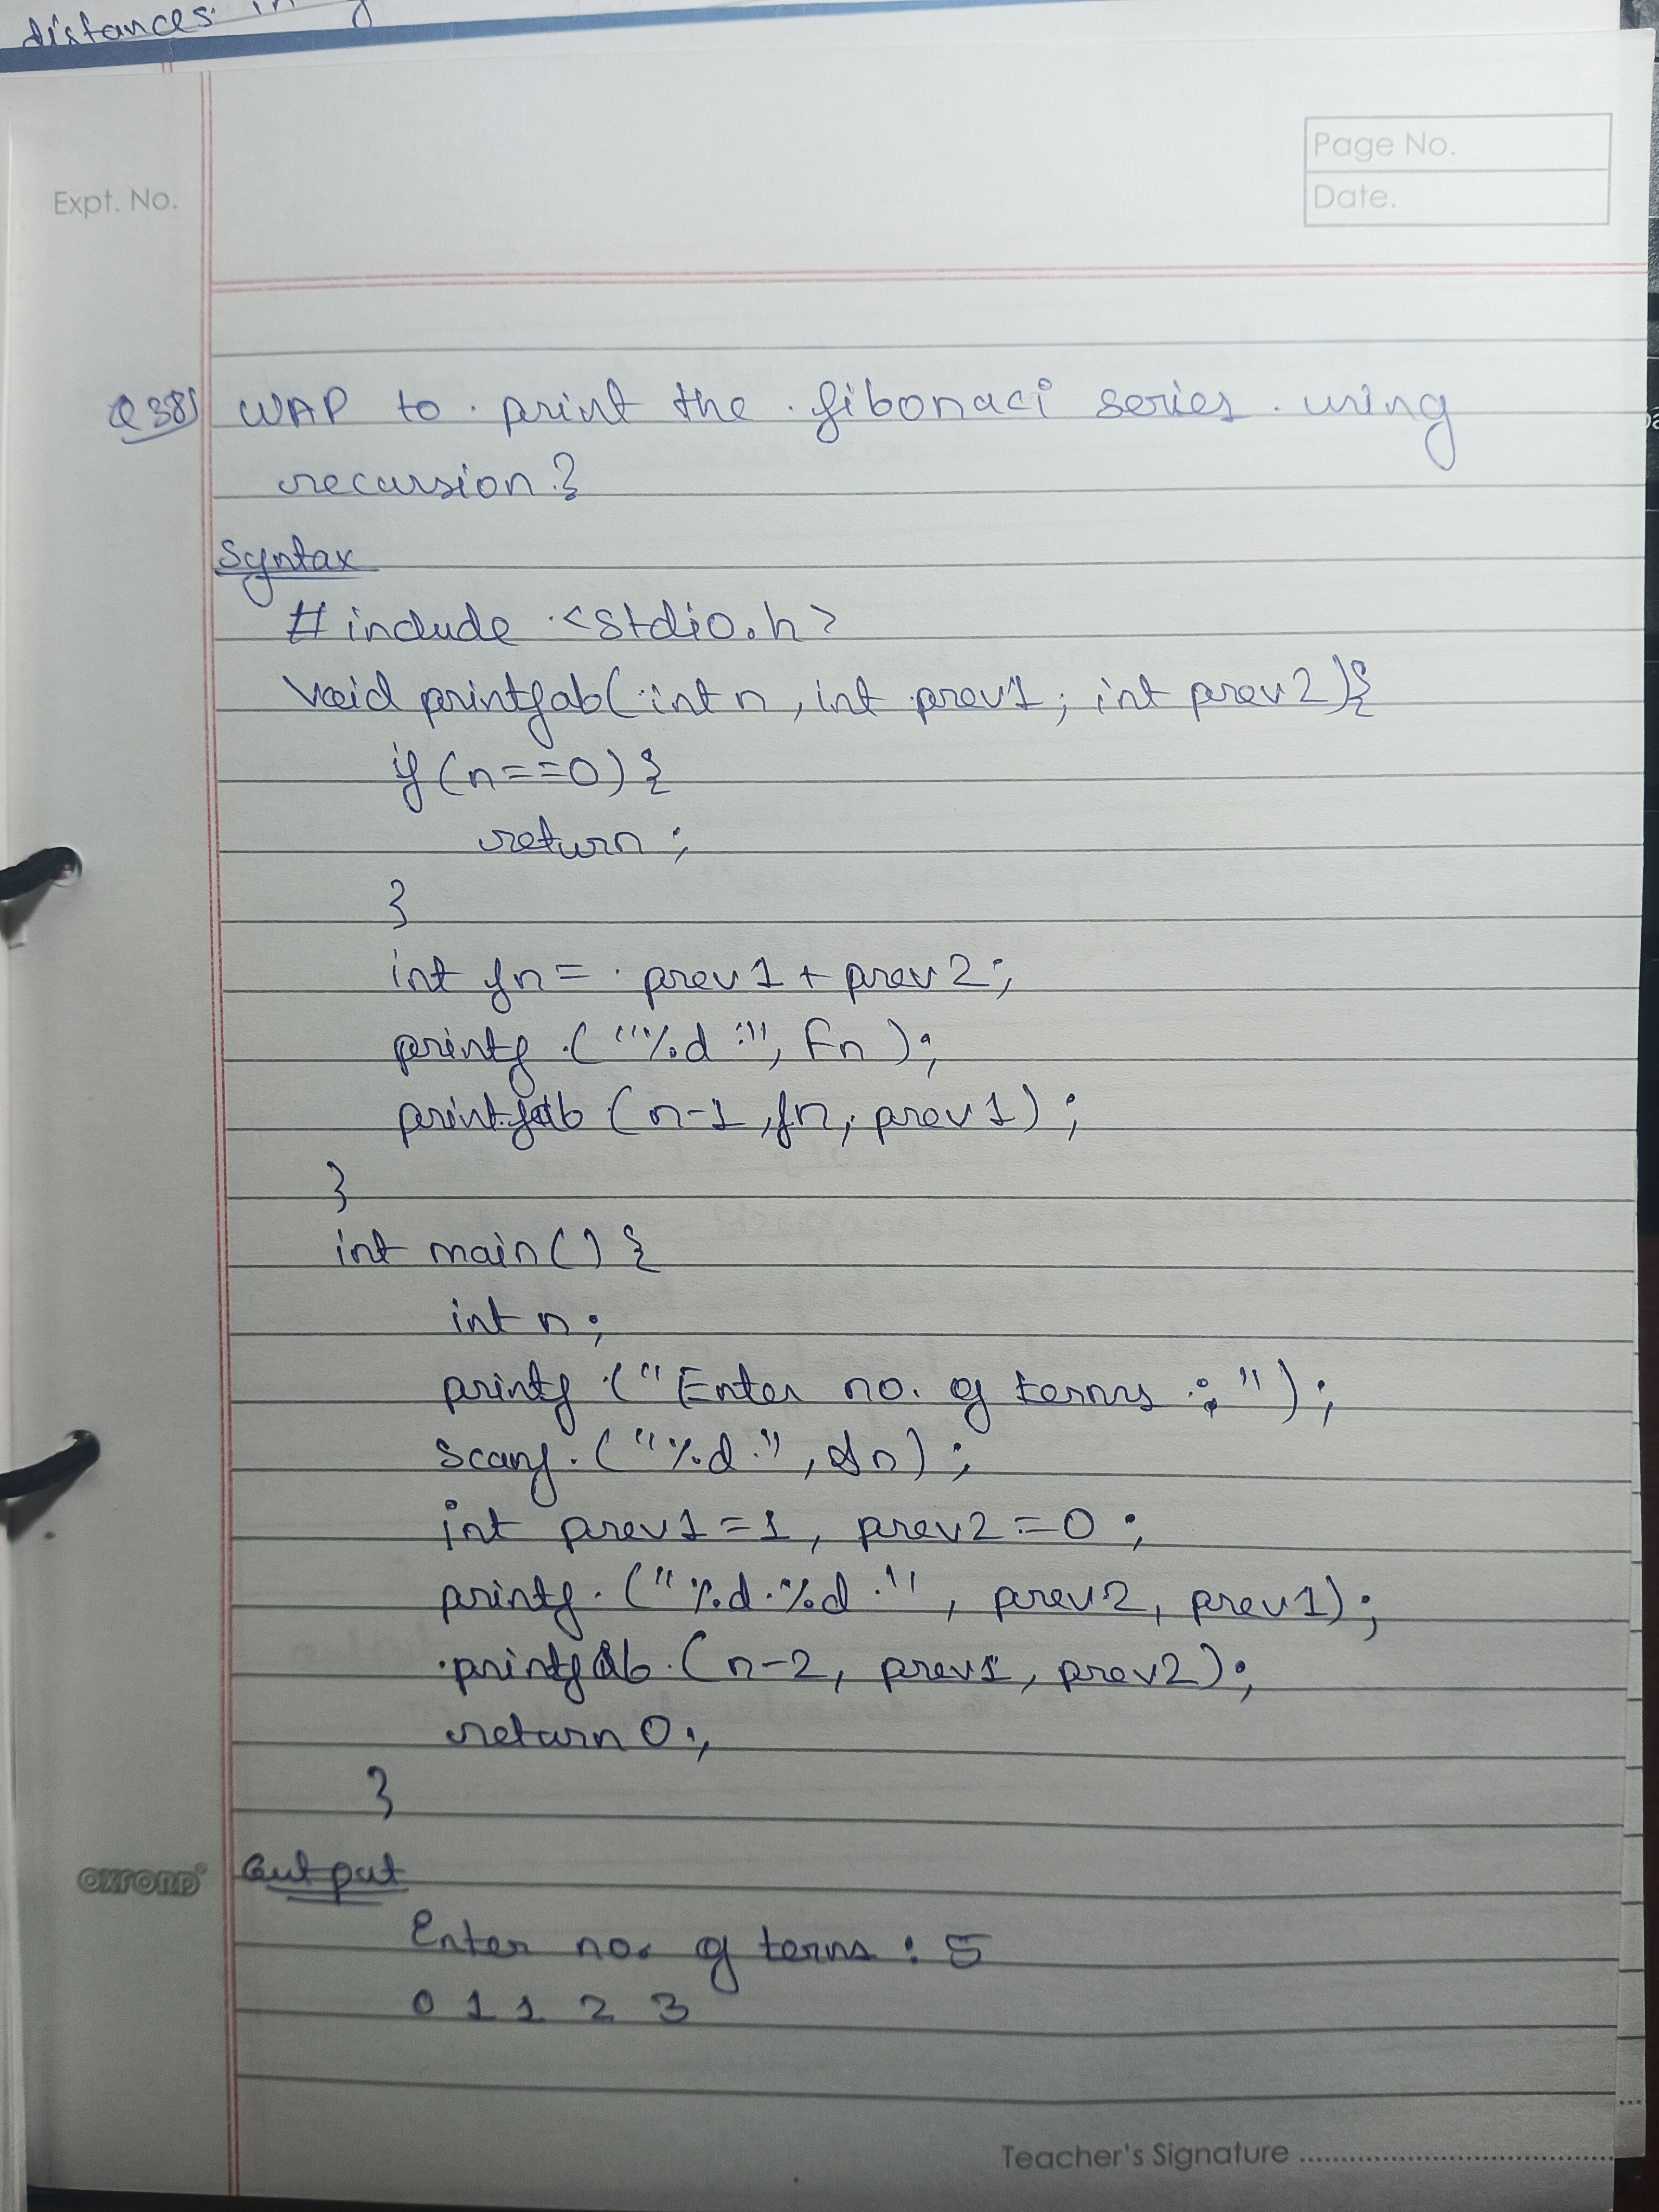 distances in
Page No.
Expt. No.
Date.
Q38) WAP to print the fibonaci series using
recursion?
Syntax
# include <stdio.h>
Void printfab(int n, int prev1, int prev2){
if (n==0) {
return;
}
int fn = prev1 + prev2;
printf ("%d ", Fn);
printfab (n-1, fn, prev1);
}
int main() {
int n;
printf ("Enter no. of terms : ");
scanf ("%d", &n);
int prev1=1, prev2=0;
printf ("%d %d ", prev2, prev1);
printfab (n-2, prev1, prev2);
return 0;
}
OXFORD
Output
Enter no. of terms : 5
0 1 1 2 3
Teacher's Signature